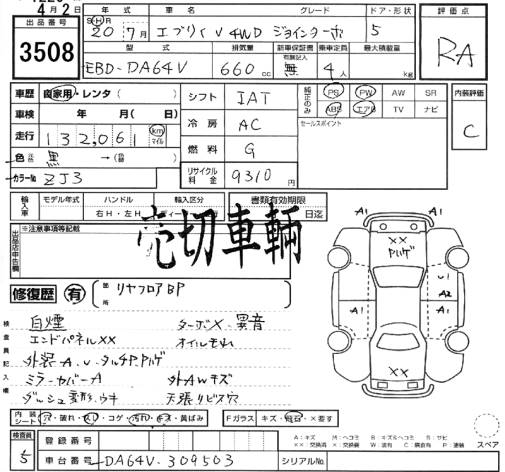 4月2日
出品番号 年式 車名 グレード ドア・形状 評価点
3508 SHR 20年 7月 エブリイV 4WD ジョインターボ 5 RA
型式 排気量 新車保証書 乗車定員 最大積載量
EBD-DA64V 660cc 有 無 4人 kg
車歴 自家用・レンタ ( ) シフト IAT 純正のみ PS PW AW SR 内装評価
車検 年 月 ( 日) 冷房 AC ABS エアB TV ナビ C
走行 132,061 km マイル 燃料 G セールスポイント
色 黒 → ( )
カラーNo ZJ3 リサイクル料金 9310円
輸入車 モデル年式 ハンドル 輸入区分 書類有効期限
右H・左H ディーラー 日迄
※注意事項等記載
売切車輌
修復歴 有 箇所 リヤフロアBP
検査員記入欄
白煙 ターボX・異音
エンドパネルXX オイルもれ
外装A.U.タルチP.Pハゲ
ミラーカバーA 外AWキズ
ダッシュ変形、ウキ 天張りビス穴
A1 A1 XX Pハゲ U A2 A1 A1 XX
内装シート 穴・破れ・切レ・コゲ・汚れ・キズ・黄ばみ Fガラス キズ・飛石・X要す
検査員 5 登録番号
車台番号 DA64V-309503 シリアルNo.
A:キズ M:ヘコミ B:キズ&ヘコミ S:サビ
XX:交換済 X:交換 W:波有 C:腐食有 P:塗装
スペア